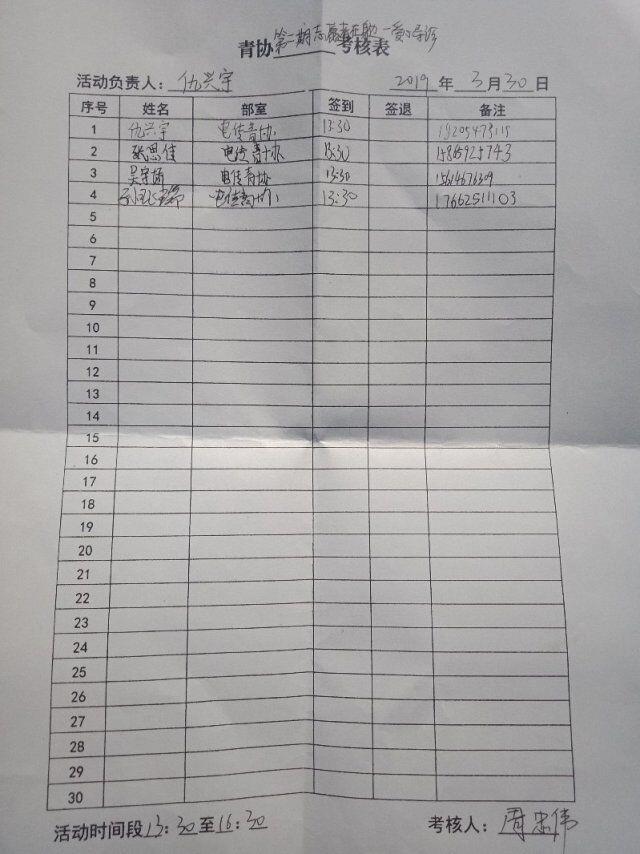 青协 第二期志愿者在 考核表
活动负责人：仇兴宇 2019 年 3 月 30 日
序号 姓名 部室 签到 签退 备注
1 仇兴宇 电信青协 13:30 18205473115
2 张思佳 电信青协 13:30 15865925743
3 吴宇扬 电信青协 13:30
4 13:30 17662511103
5
6
7
8
9
10
11
12
13
14
15
16
17
18
19
20
21
22
23
24
25
26
27
28
29
30
活动时间段 13：30 至 16：30 考核人：周忠伟